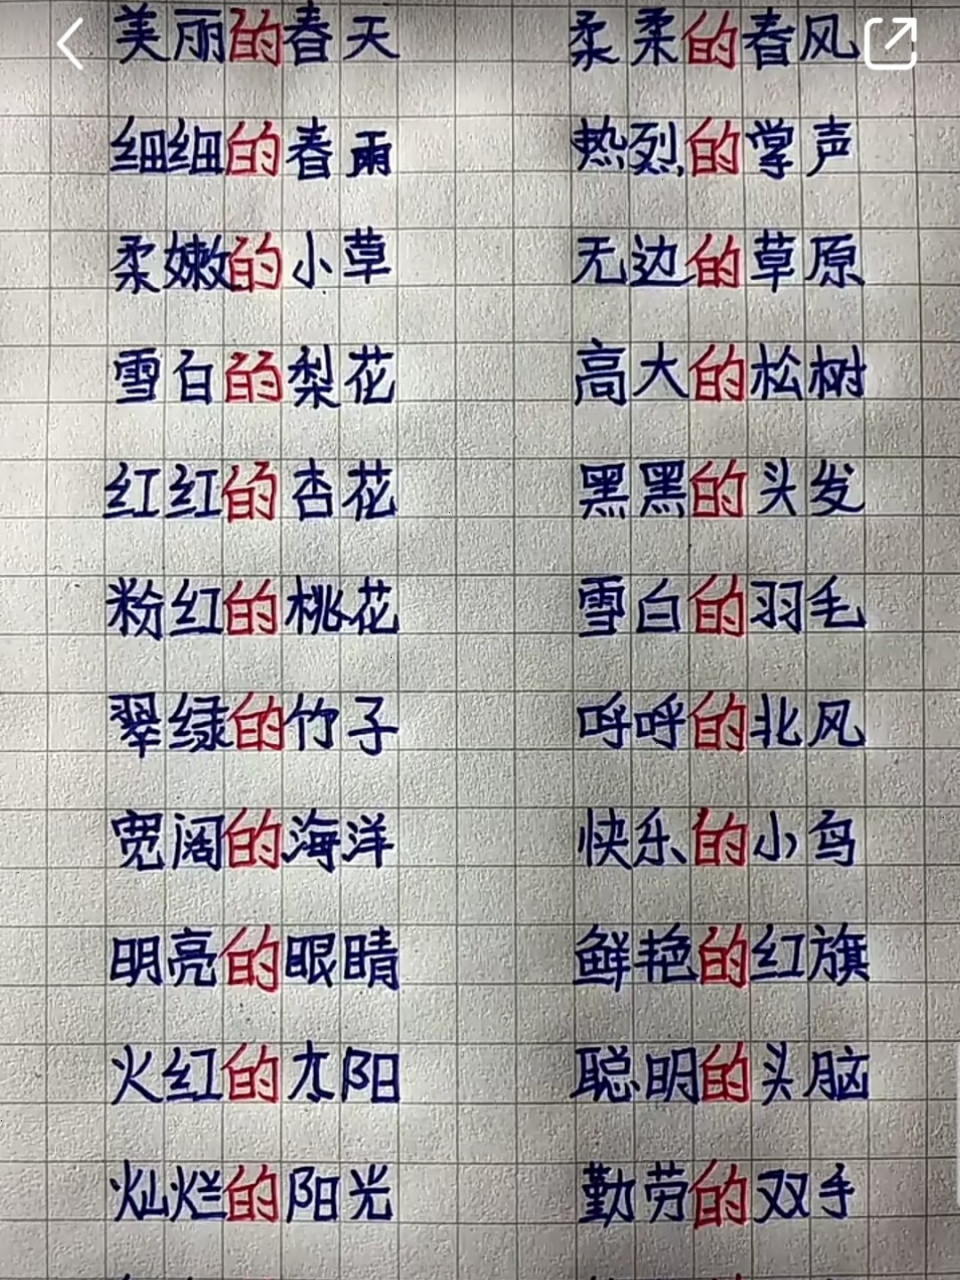 美丽的春天 柔柔的春风
细细的春雨 热烈的掌声
柔嫩的小草 无边的草原
雪白的梨花 高大的松树
红红的杏花 黑黑的头发
粉红的桃花 雪白的羽毛
翠绿的竹子 呼呼的北风
宽阔的海洋 快乐的小鸟
明亮的眼睛 鲜艳的红旗
火红的太阳 聪明的头脑
灿烂的阳光 勤劳的双手